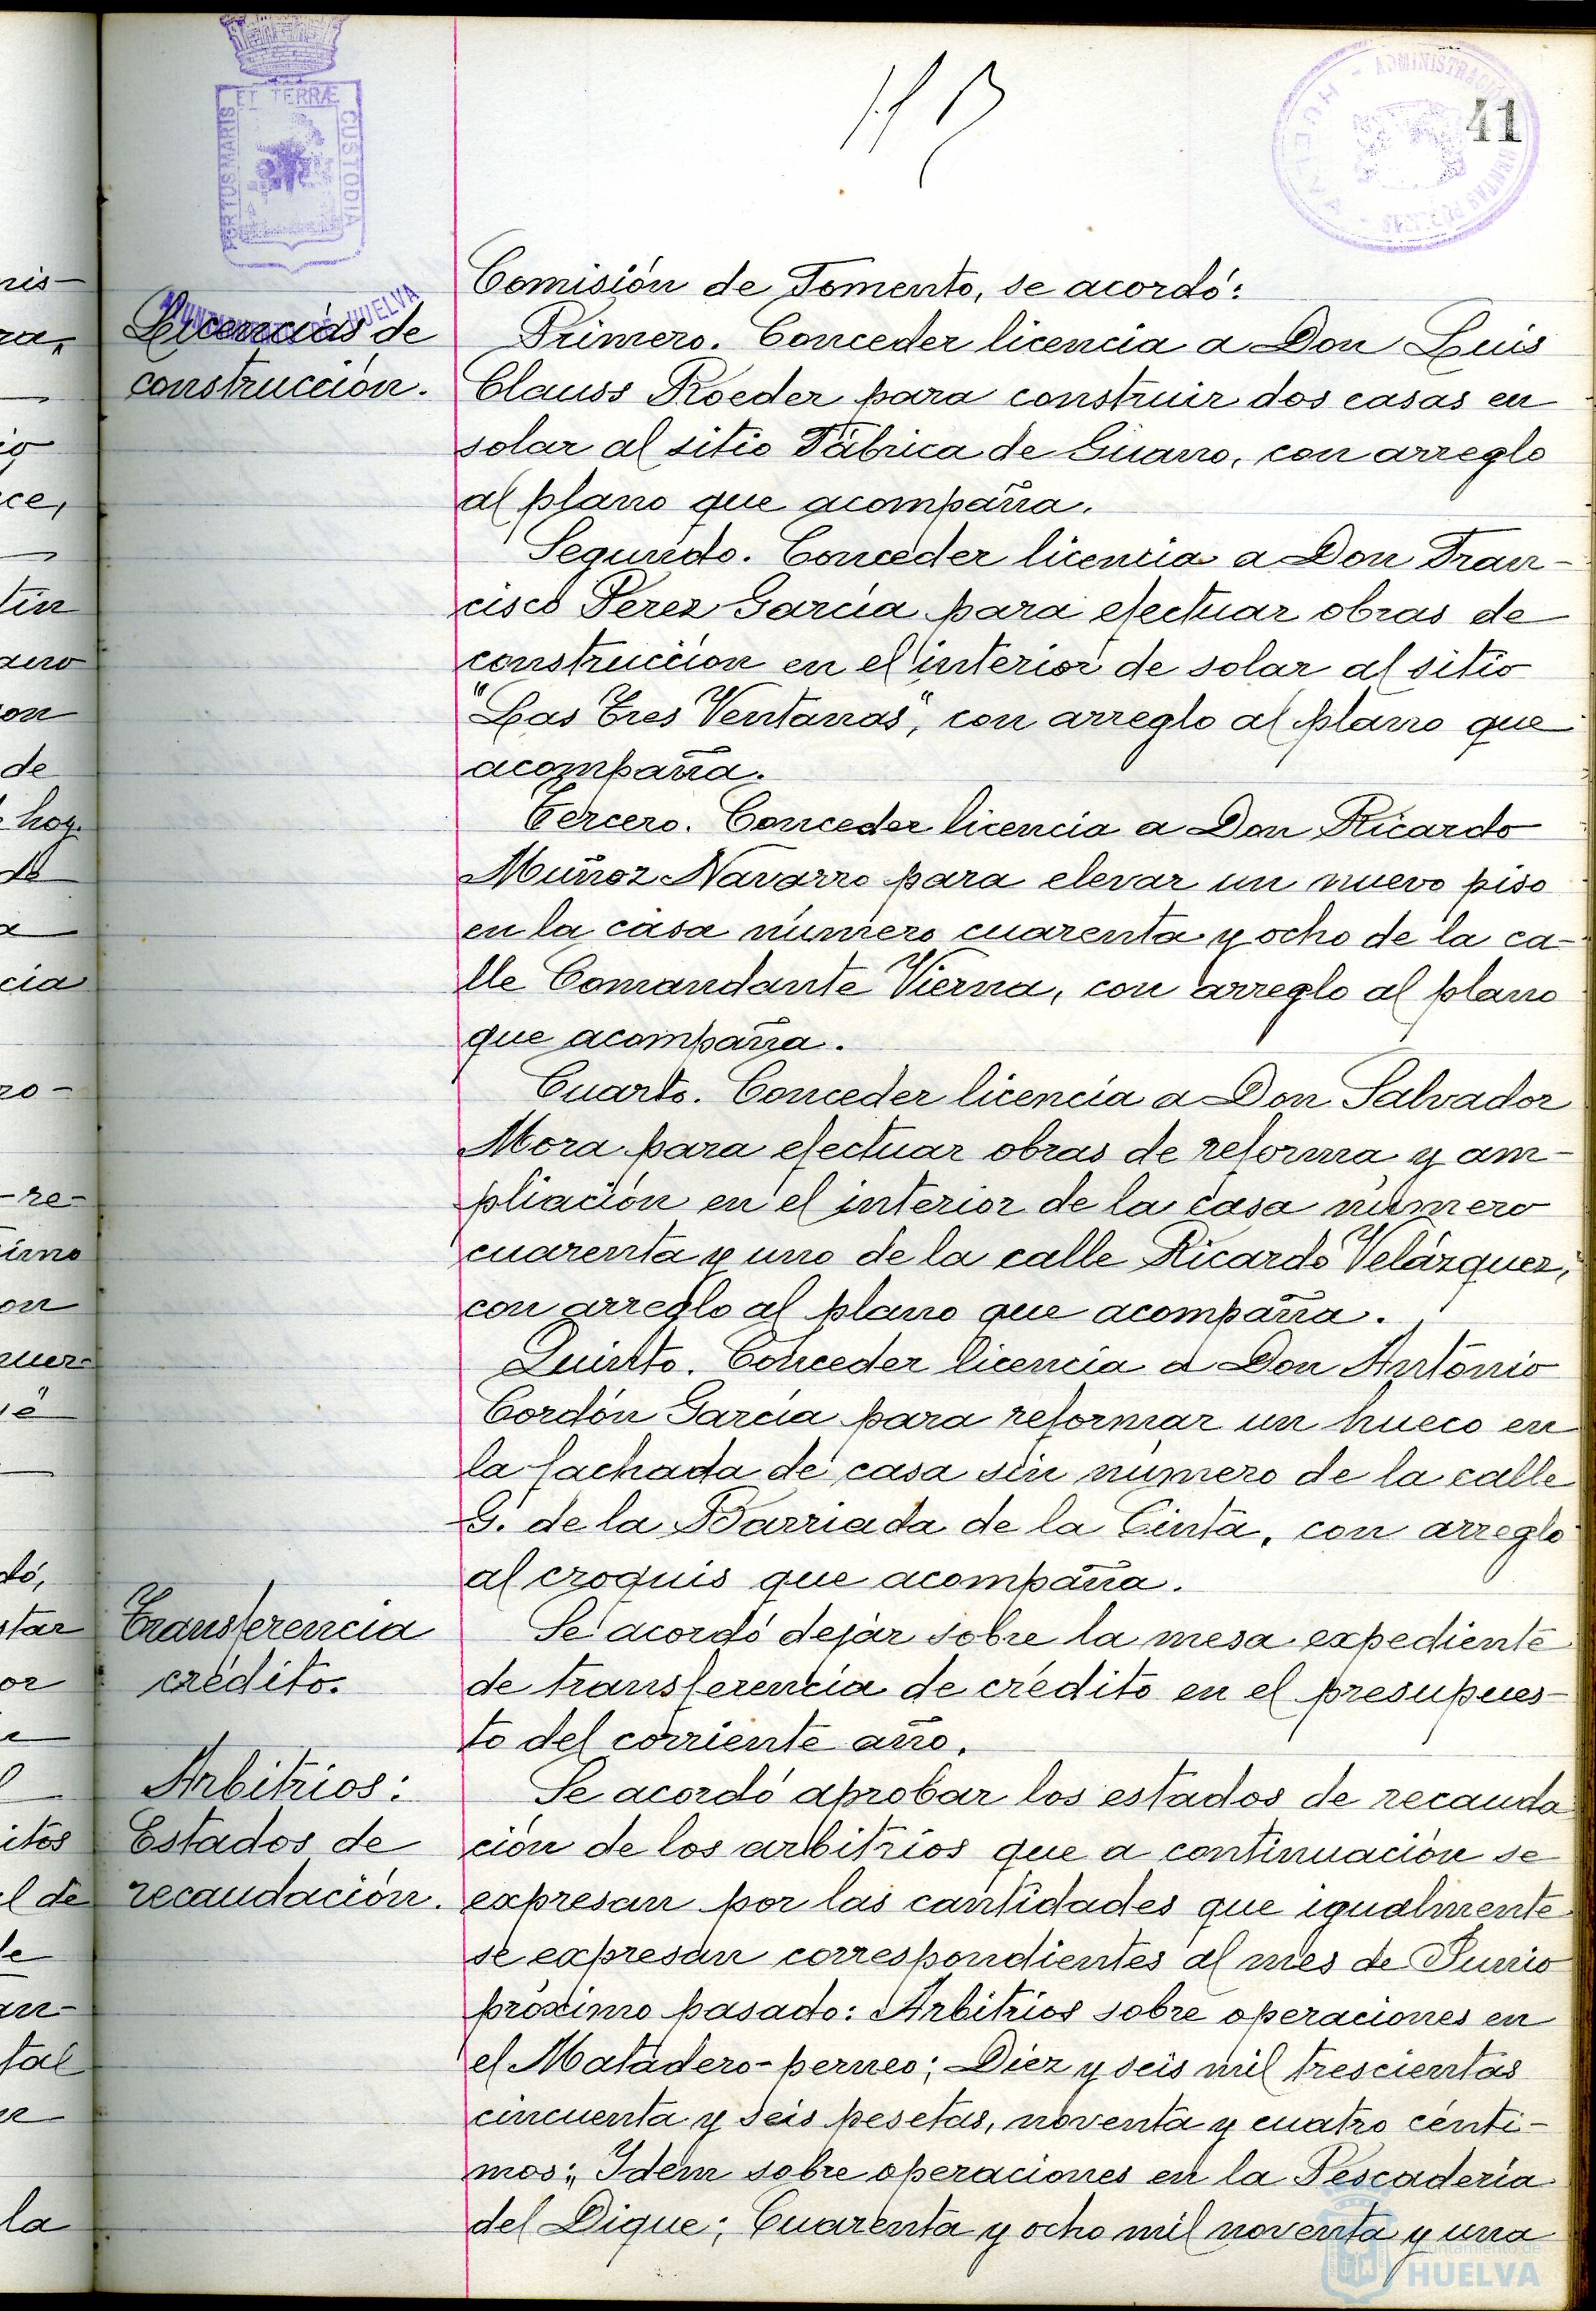 41
ET TERRÆ
PORTUS MARIS
CUSTODIA
AYUNTAMIENTO DE HUELVA
ADMINISTRACIÓN
HUELVA
Comisión de Fomento, se acordó:
Licencias de
construcción.
Primero. Conceder licencia a Don Luis
Clauss Roeder para construir dos casas en
solar al sitio Fábrica de Guano, con arreglo
al plano que acompaña.
Segundo. Conceder licencia a Don Fran-
cisco Perez García para efectuar obras de
construcción en el interior de solar al sitio
"Las Tres Ventanas", con arreglo al plano que
acompaña.
Tercero. Conceder licencia a Don Ricardo
Muñoz Navarro para elevar un nuevo piso
en la casa número cuarenta y ocho de la ca-
lle Comandante Vierna, con arreglo al plano
que acompaña.
Cuarto. Conceder licencia a Don Salvador
Mora para efectuar obras de reforma y am-
pliación en el interior de la casa número
cuarenta y uno de la calle Ricardo Velázquez,
con arreglo al plano que acompaña.
Quinto. Conceder licencia a Don Antonio
Cordón García para reformar un hueco en
la fachada de casa sin número de la calle
G. de la Barriada de la Cinta, con arreglo
al croquis que acompaña.
Transferencia
crédito.
Se acordó dejar sobre la mesa expediente
de transferencia de crédito en el presupues-
to del corriente año.
Arbitrios:
Estados de
recaudación.
Se acordó aprobar los estados de recauda
ción de los arbitrios que a continuación se
expresan por las cantidades que igualmente
se expresan correspondientes al mes de Junio
próximo pasado: Arbitrios sobre operaciones en
el Matadero-perneo; Diez y seis mil trescientas
cincuenta y seis pesetas, noventa y cuatro cénti-
mos; Idem sobre operaciones en la Pescadería
del Dique; Cuarenta y ocho mil noventa y una
Ayuntamiento de
HUELVA